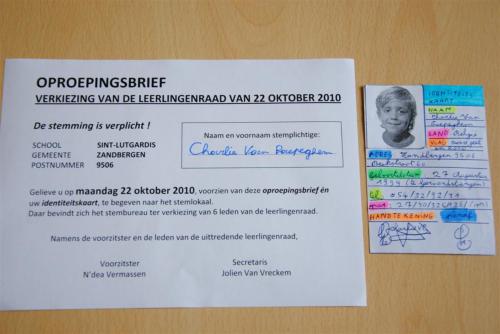 OPROEPINGSBRIEF
VERKIEZING VAN DE LEERLINGENRAAD VAN 22 OKTOBER 2010
De stemming is verplicht !
SCHOOL SINT-LUTGARDIS
GEMEENTE ZANDBERGEN
POSTNUMMER 9506
Naam en voornaam stemplichtige:
Charlie Van
Gelieve u op maandag 22 oktober 2010, voorzien van deze oproepingsbrief én
uw identiteitskaart, te begeven naar het stemlokaal.
Daar bevindt zich het stembureau ter verkiezing van 6 leden van de leerlingenraad.
Namens de voorzitster en de leden van de uittredende leerlingenraad,
Voorzitter
N'dea Vermassen
Secretaris
Jolien Van Vreckem
IDENTITEITS
KAART
NAAM
Charlie Van
LAND België
ADRES Zandbergen 9506
Geboortedatum 27 Augustus
1999
054/32/92/31
HANDTEKENING